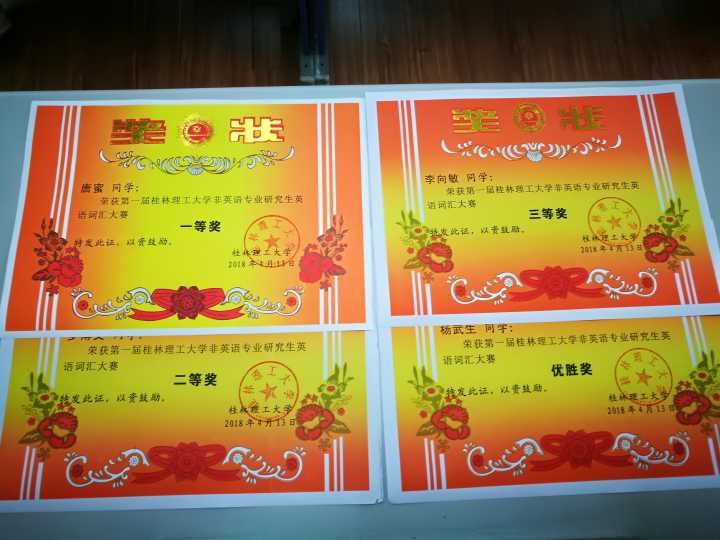 奖 状
唐蜜 同学:
荣获第一届桂林理工大学非英语专业研究生英
语词汇大赛
一等奖
特发此证,以资鼓励。
桂林理工大学
2018年4月13日
奖 状
李向敏 同学:
荣获第一届桂林理工大学非英语专业研究生英
语词汇大赛
三等奖
特发此证,以资鼓励。
桂林理工大学
2018年4月13日
同学:
荣获第一届桂林理工大学非英语专业研究生英
语词汇大赛
二等奖
特发此证,以资鼓励。
桂林理工大学
2018年4月13日
杨武生 同学:
荣获第一届桂林理工大学非英语专业研究生英
语词汇大赛
优胜奖
特发此证,以资鼓励。
桂林理工大学
2018年4月13日